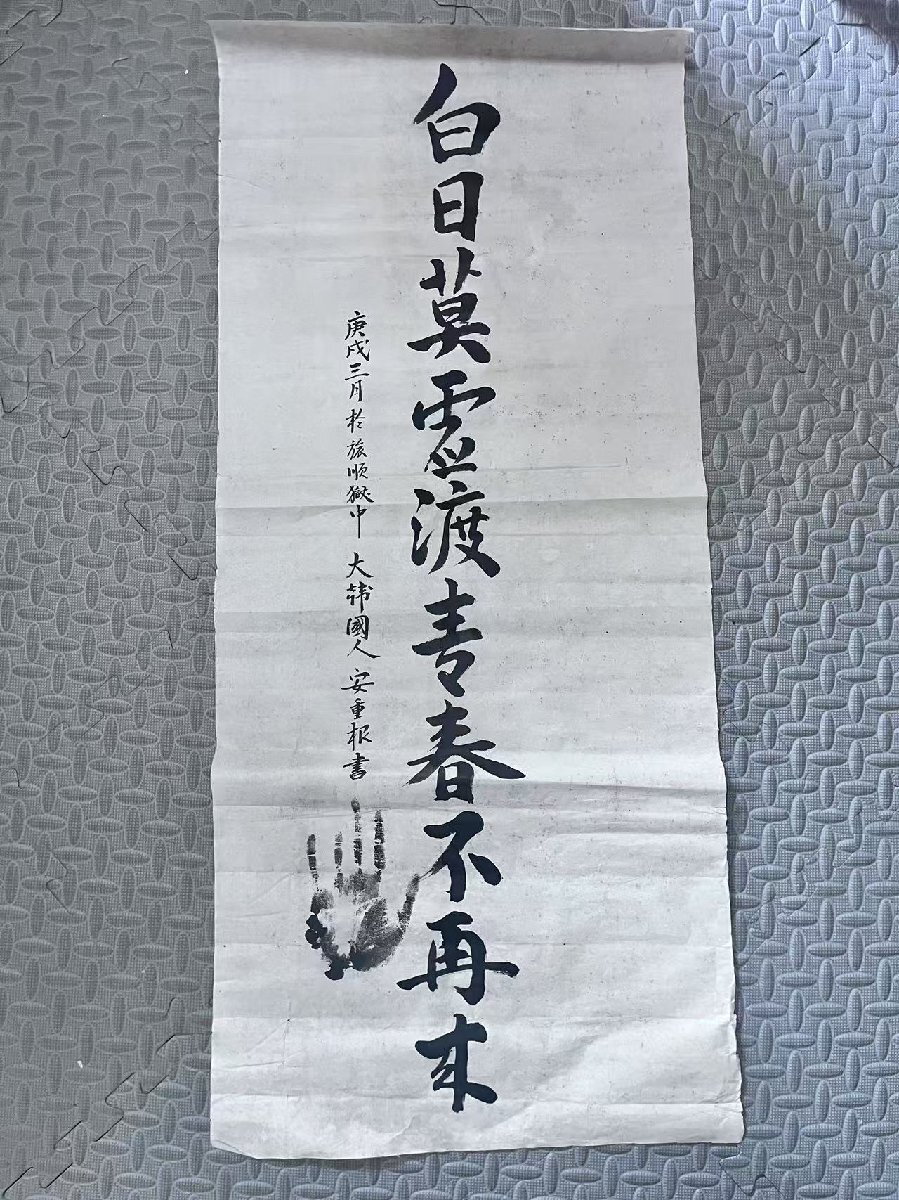 白日莫虛渡青春不再来
庚戌三月於旅順獄中 大韓國人 安重根書